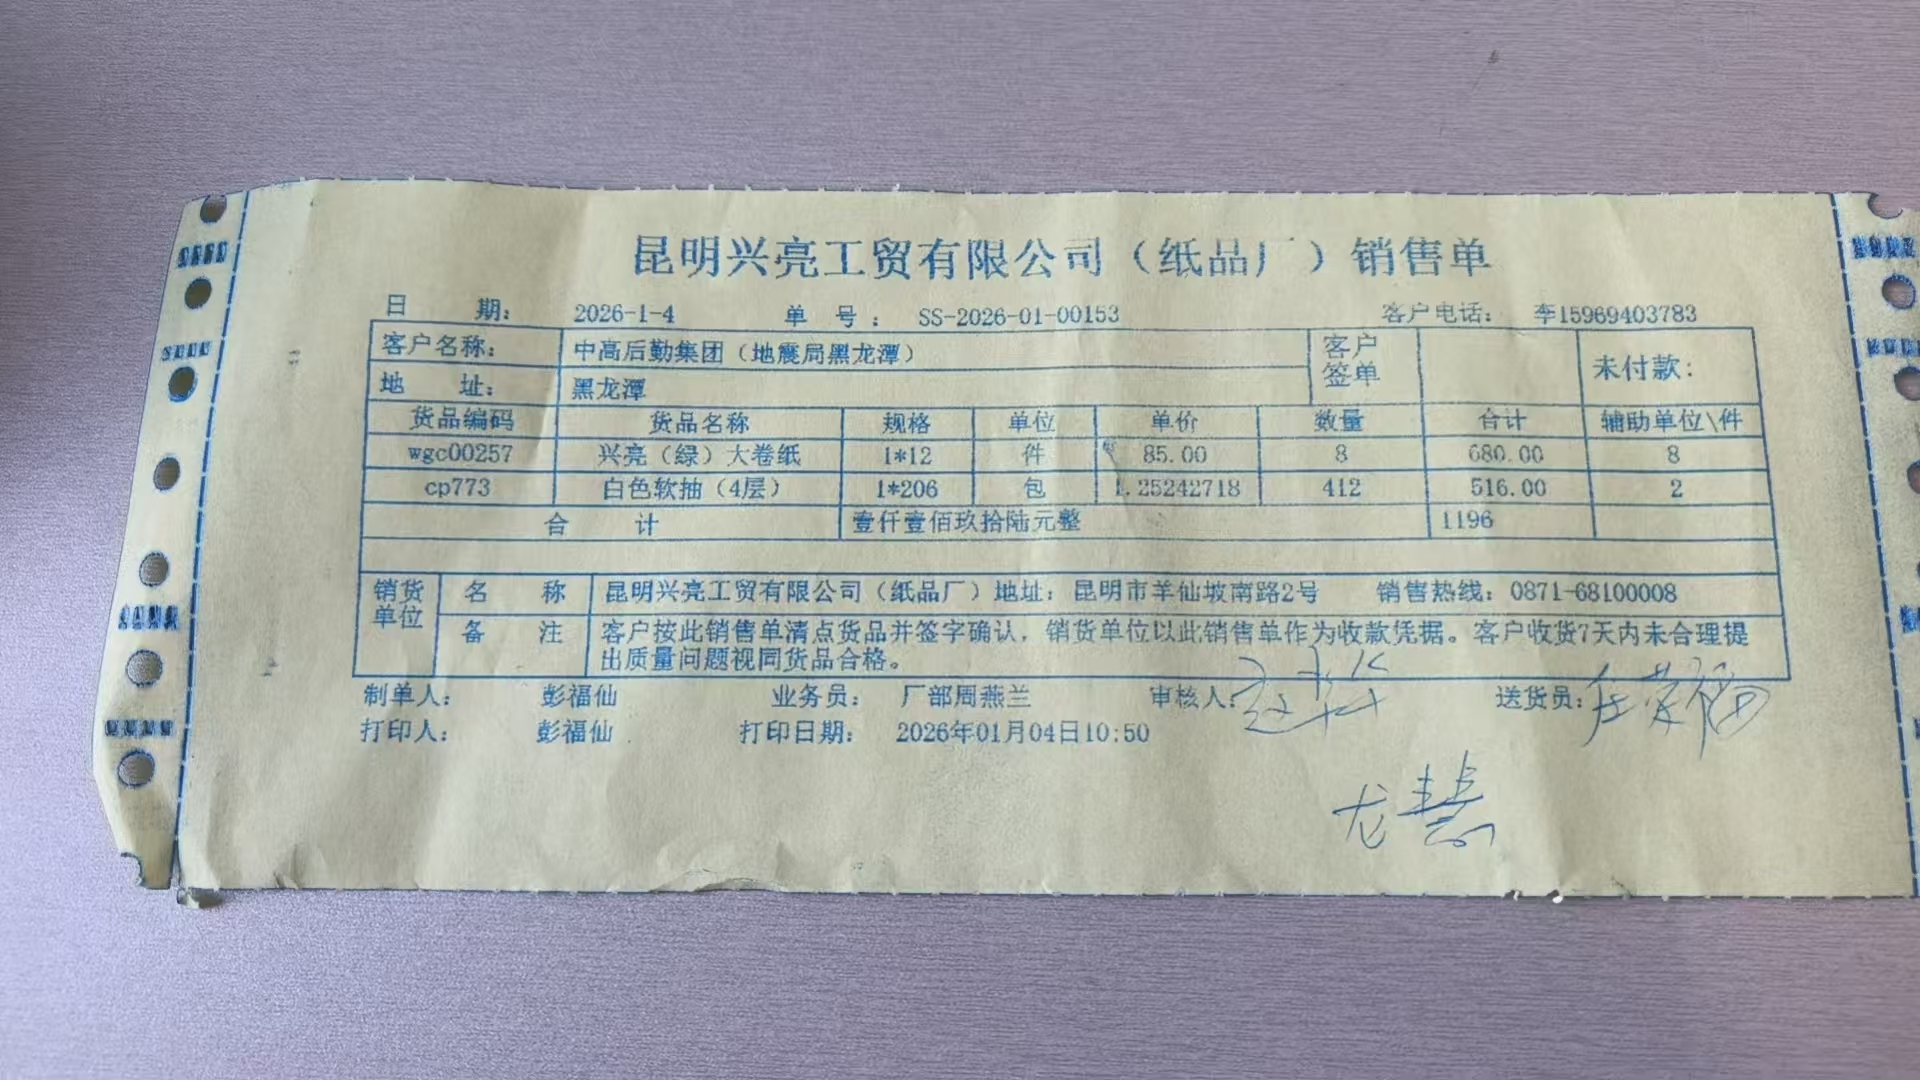 昆明兴亮工贸有限公司（纸品厂）销售单
日 期： 2026-1-4 单 号： SS-2026-01-00153 客户电话： 李15969403783
客户名称： 中高后勤集团（地震局黑龙潭） 客户签单 未付款：
地 址： 黑龙潭
货品编码 货品名称 规格 单位 单价 数量 合计 辅助单位\件
wgc00257 兴亮（绿）大卷纸 1*12 件 85.00 8 680.00 8
cp773 白色软抽（4层） 1*206 包 1.25242718 412 516.00 2
合 计 壹仟壹佰玖拾陆元整 1196
销货单位 名 称 昆明兴亮工贸有限公司（纸品厂）地址：昆明市羊仙坡南路2号 销售热线：0871-68100008
备 注 客户按此销售单清点货品并签字确认，销货单位以此销售单作为收款凭据。客户收货7天内未合理提
出质量问题视同货品合格。
制单人： 彭福仙 业务员： 厂部周燕兰 审核人： 送货员：
打印人： 彭福仙 打印日期： 2026年01月04日10:50
龙慧